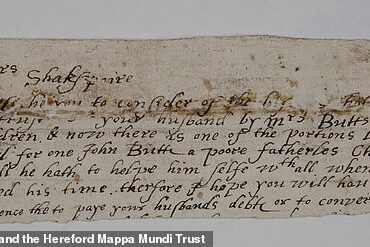 rs
Shakspaire
you to consider of the
your husband by mrs Butts
dren & now there is one of the portions
for one John Butt a poore fatherles Ch
he hath to helpe him selfe wth all when
ed his time. therfore I hope you will hau
ence the to paye your husbands debte or to conver
and the Hereford Mappa Mundi Trust